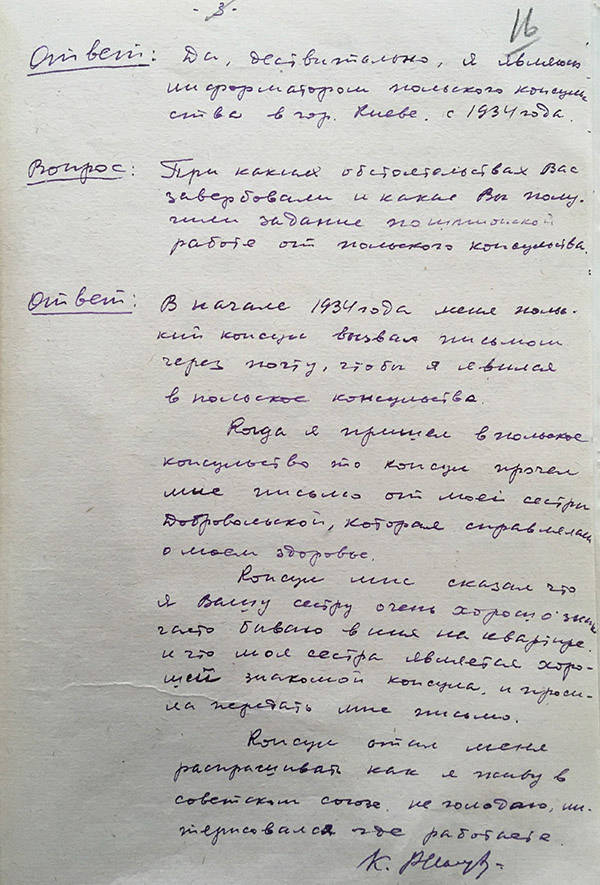 - 3 -
16
Ответ: Да, дествительно, я являюсь
информатором польского консуль
ства в гор. Киеве. с 1934 года.
Вопрос: При каких обстоятельствах Вас
завербовали и какие Вы полу-
чили задание по шпионской
работе от польского консульства.
Ответ: В начале 1934 года меня поль-
кий консул вызвал письмом
через почту, чтобы я явился
в польское консульства.
Когда я пришел в польское
консульство то консул прочел
мне письмо от моей сестры
Добровольской, которая справлялась
о моем здоровье.
Консул мне сказал что
я Вашу сестру очень хорошо знаю
часто бываю в нея на квартире.
и что моя сестра является хоро-
шей знакомой консула. и проси-
ла передать мне письмо.
Консул стал меня
распрашивать как я живу в
советском союзе. не голодаю, ин-
терисовался где работаете.
К.